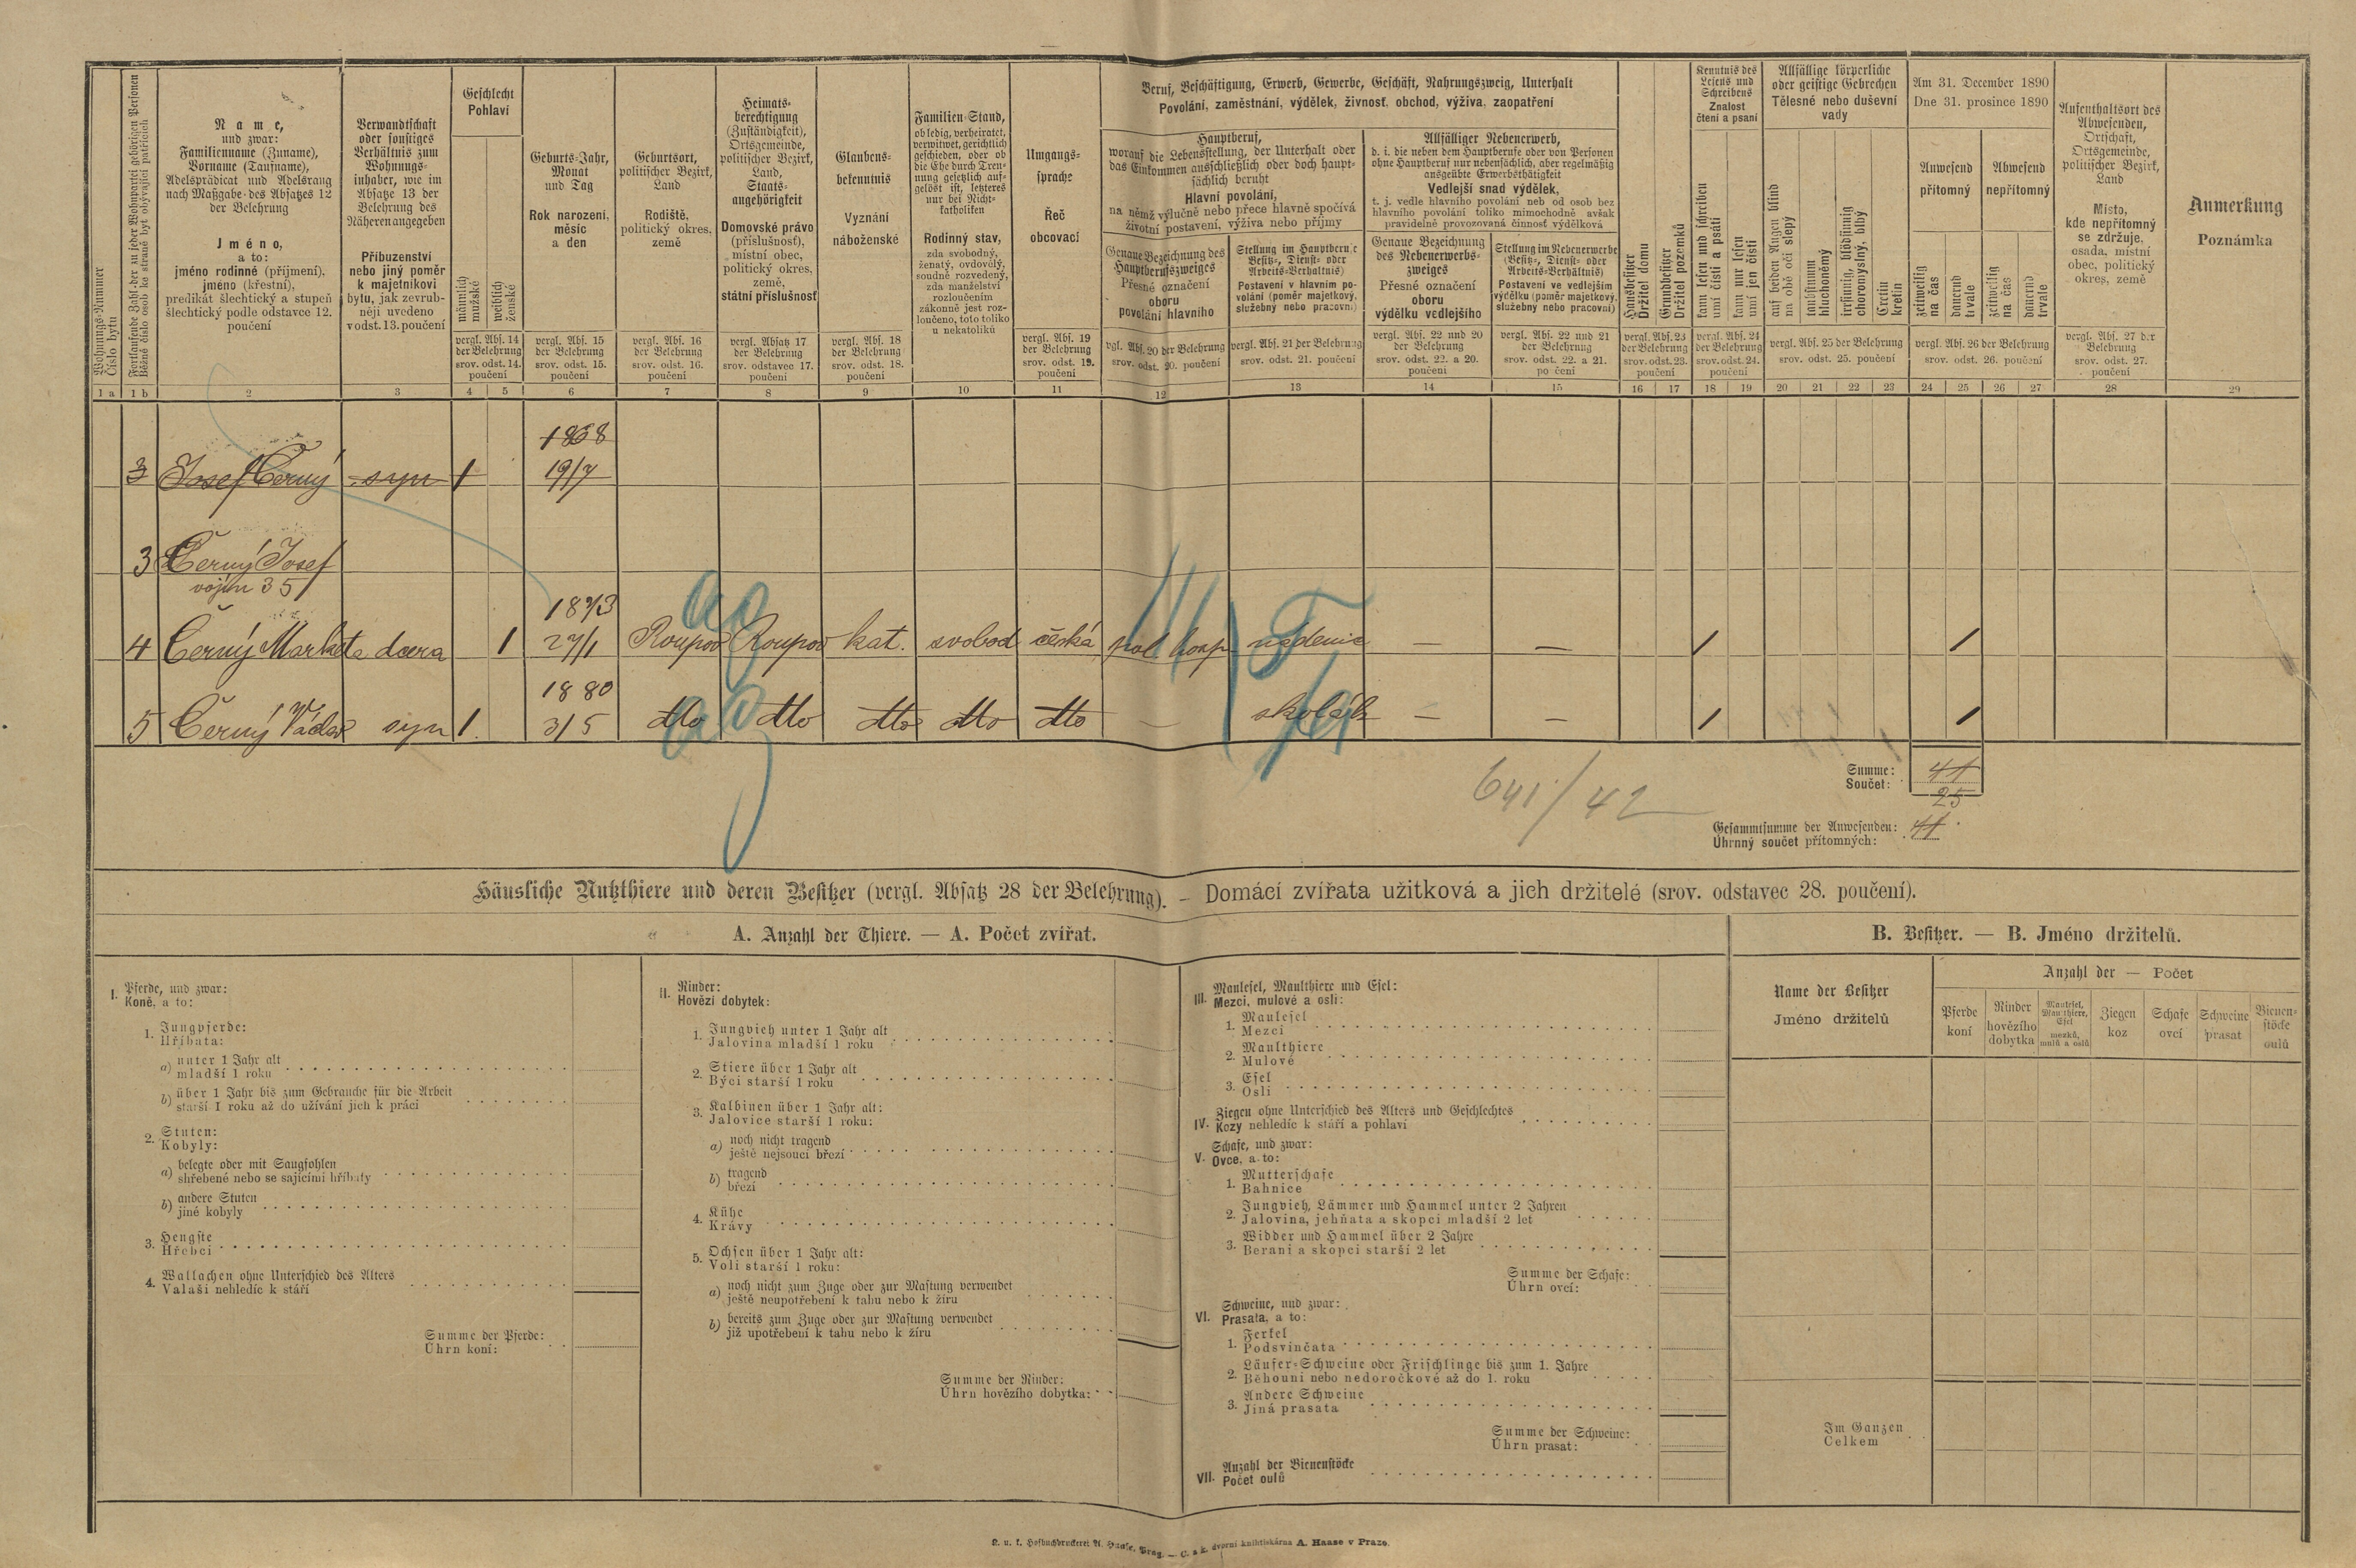 Wohnungs-Nummer
Číslo bytu
Fortlaufende Zahl der zu jeder Wohnpartei gehörigen Personen
Běžné číslo osob ke straně byt obývající patřících
Name,
und zwar:
Familienname (Zuname),
Vorname (Taufname),
Adelsprädicat und Adelsrang
nach Maßgabe des Absatzes 12
der Belehrung
Jméno,
a to:
jméno rodinné (příjmení),
jméno (křestní),
predikát šlechtický a stupeň
šlechtický podle odstavce 12.
poučení
Verwandtschaft
oder sonstiges
Verhältnis zum
Wohnungs-
inhaber, wie im
Absatze 13 der
Belehrung des
Näheren angegeben
Příbuzenství
nebo jiný poměr
k majetníkovi
bytu, jak zevrub-
něji uvedeno
v odst. 13. poučení
Geschlecht
Pohlaví
männlich
mužské
weiblich
ženské
vergl. Abs. 14
der Belehrung
srov. odst. 14.
poučení
Geburts-Jahr,
Monat
und Tag
Rok narození,
měsíc
a den
vergl. Abs. 15
der Belehrung
srov. odst. 15.
poučení
Geburtsort,
politischer Bezirk,
Land
Rodiště,
politický okres,
země
vergl. Abs. 16
der Belehrung
srov. odst. 16.
poučení
Heimats-
berechtigung
(Zuständigkeit),
Ortsgemeinde,
politischer Bezirk,
Land,
Staats-
angehörigkeit
Domovské právo
(příslušnosť),
místní obec,
politický okres,
země,
státní příslušnosť
vergl. Absatz 17
der Belehrung
srov. odstavec 17.
poučení
Glaubens-
bekenntnis
Vyznání
náboženské
vergl. Abs. 18
der Belehrung
srov. odst. 18.
poučení
Familien-Stand,
ob ledig, verheiratet,
verwitwet, gerichtlich
geschieden, oder ob
die Ehe durch Tren-
nung gesetzlich auf-
gelöst ist, letzteres
nur bei Nicht-
katholiken
Rodinný stav,
zda svobodný,
ženatý, ovdovělý,
soudně rozvedený,
zda manželství
rozloučením
zákonně jest roz-
loučeno, toto toliko
u nekatolíků
Umgangs-
sprache
Řeč
obcovací
vergl. Abs. 19
der Belehrung
srov. odst. 19.
poučení
Beruf, Beschäftigung, Erwerb, Gewerbe, Geschäft, Nahrungszweig, Unterhalt
Povolání, zaměstnání, výdělek, živnosť, obchod, výživa, zaopatření
Hauptberuf,
worauf die Lebensstellung, der Unterhalt oder
das Einkommen ausschließlich oder doch haupt-
sächlich beruht
Hlavní povolání,
na němž výlučně nebo přece hlavně spočívá
životní postavení, výživa nebo příjmy
Genaue Bezeichnung des
Hauptberufszweiges
Přesné označení
oboru
povolání hlavního
vgl. Abs. 20 der Belehrung
srov. odst. 20. poučení
Stellung im Hauptberufe
Besitz-, Dienst- oder
Arbeits-Verhältnis)
Postavení v hlavním po-
volání (poměr majetkový,
služebný nebo pracovní)
vergl. Abs. 21 der Belehrung
srov. odst. 21. poučení
Allfälliger Nebenerwerb,
d. i. die neben dem Hauptberufe oder von Personen
ohne Hauptberuf nur nebensächlich, aber regelmäßig
ausgeübte Erwerbsthätigkeit
Vedlejší snad výdělek,
t. j. vedle hlavního povolání neb od osob bez
hlavního povolání toliko mimochodně avšak
pravidelně provozovaná činnosť výdělková
Genaue Bezeichnung
des Nebenerwerbs-
zweiges
Přesné označení
oboru
výdělku vedlejšího
vergl. Abs. 22 und 20
der Belehrung
srov. odst. 22. a 20.
poučení
Stellung im Nebenerwerbe
(Besitz-, Dienst- oder
Arbeits-Verhältnis)
Postavení ve vedlejším
výdělku (poměr majetkový,
služebný nebo pracovní)
vergl. Abs. 22 und 21
der Belehrung
srov. odst. 22. a 21.
poučení
Hausbesitzer
Držitel domu
Grundbesitzer
Držitel pozemků
vergl. Abs. 23
der Belehrung
srov. odst. 23.
poučení
Kenntnis des
Lesens und
Schreibens
Znalost
čtení a psaní
kann lesen und schreiben
umí čísti a psáti
kann nur lesen
umí jen čísti
vergl. Abs. 24
der Belehrung
srov. odst. 24.
poučení
Allfällige körperliche
oder geistige Gebrechen
Tělesné nebo duševní
vady
auf beiden Augen blind
na obě oči slepý
taubstumm
hluchoněmý
irrsinnig, blödsinnig
choromyslný, blbý
Cretin
kretin
vergl. Abs. 25 der Belehrung
srov. odst. 25. poučení
Am 31. December 1890
Dne 31. prosince 1890
Anwesend
přítomný
Abwesend
nepřítomný
zeitweilig
na čas
dauernd
trvale
zeitweilig
na čas
dauernd
trvale
vergl. Abs. 26 der Belehrung
srov. odst. 26. poučení
Aufenthaltsort des
Abwesenden,
Ortschaft,
Ortsgemeinde,
politischer Bezirk,
Land
Místo,
kde nepřítomný
se zdržuje,
osada, místní
obec, politický
okres, země
vergl. Abs. 27 der
Belehrung
srov. odst. 27.
poučení
Anmerkung
Poznámka
1 a 1 b 2 3 4 5 6 7 8 9 10 11 12 13 14 15 16 17 18 19 20 21 22 23 24 25 26 27 28 29
1868
3 Josef Černý syn 1 19/7
3 Černý Josef
vojín 35
1873
4 Černý Marketa dcera 1 27/1 Roupov Roupov kat. svobod česká pol. hosp. nádenic — — 1 1
1880
5 Černý Václav syn 1. 3/5 dto dto dto dto dto — školák — — 1 1
641/42
Summe:
Součet:
25
Gesammtsumme der Anwesenden:
Úhrnný součet přítomných:
Häusliche Nutzthiere und deren Besitzer (vergl. Absatz 28 der Belehrung). — Domácí zvířata užitková a jich držitelé (srov. odstavec 28. poučení).
A. Anzahl der Thiere. — A. Počet zvířat.
I. Pferde, und zwar:
Koně, a to:
1. Jungpferde:
Hříbata:
a) unter 1 Jahr alt
mladší 1 roku
b) über 1 Jahr bis zum Gebrauche für die Arbeit
starší 1 roku až do užívání jich k práci
2. Stuten:
Kobyly:
a) belegte oder mit Saugfohlen
shřebené nebo se sajícími hříbaty
b) andere Stuten
jiné kobyly
3. Hengste
Hřebci
4. Wallachen ohne Unterschied des Alters
Valaši nehledíc k stáří
Summe der Pferde:
Úhrn koní:
II. Rinder:
Hovězí dobytek:
1. Jungvieh unter 1 Jahr alt
Jalovina mladší 1 roku
2. Stiere über 1 Jahr alt
Býci starší 1 roku
3. Kalbinen über 1 Jahr alt:
Jalovice starší 1 roku:
a) noch nicht tragend
ještě nejsoucí březí
b) tragend
březí
4. Kühe
Krávy
5. Ochsen über 1 Jahr alt:
Voli starší 1 roku:
a) noch nicht zum Zuge oder zur Mastung verwendet
ještě neupotřebení k tahu nebo k žíru
b) bereits zum Zuge oder zur Mastung verwendet
již upotřebení k tahu nebo k žíru
Summe der Rinder:
Úhrn hovězího dobytka:
III. Maulesel, Maulthiere und Esel:
Mezci, mulové a osli:
1. Maulesel
Mezci
2. Maulthiere
Mulové
3. Esel
Osli
IV. Ziegen ohne Unterschied des Alters und Geschlechtes
Kozy nehledíc k stáří a pohlaví
V. Schafe, und zwar:
Ovce, a to:
1. Mutterschafe
Bahnice
2. Jungvieh, Lämmer und Hammel unter 2 Jahren
Jalovina, jehňata a skopci mladší 2 let
3. Widder und Hammel über 2 Jahre
Berani a skopci starší 2 let
Summe der Schafe:
Úhrn ovcí:
VI. Schweine, und zwar:
Prasata, a to:
1. Ferkel
Podsvinčata
2. Läufer-Schweine oder Frischlinge bis zum 1. Jahre
Běhouni nebo nedoročkové až do 1. roku
3. Andere Schweine
Jiná prasata
Summe der Schweine:
Úhrn prasat:
VII. Anzahl der Bienenstöcke
Počet oulů
B. Besitzer. — B. Jméno držitelů.
Name der Besitzer
Jméno držitelů
Anzahl der — Počet
Pferde
koní
Rinder
hovězího
dobytka
Maulesel,
Maulthiere,
Esel
mezků,
mulů a oslů
Ziegen
koz
Schafe
ovcí
Schweine
prasat
Bienen-
stöcke
oulů
Im Ganzen
Celkem
K. u. k. Hofbuchdruckerei A. Haase, Prag. — C. a k. dvorní knihtiskárna A. Haase v Praze.